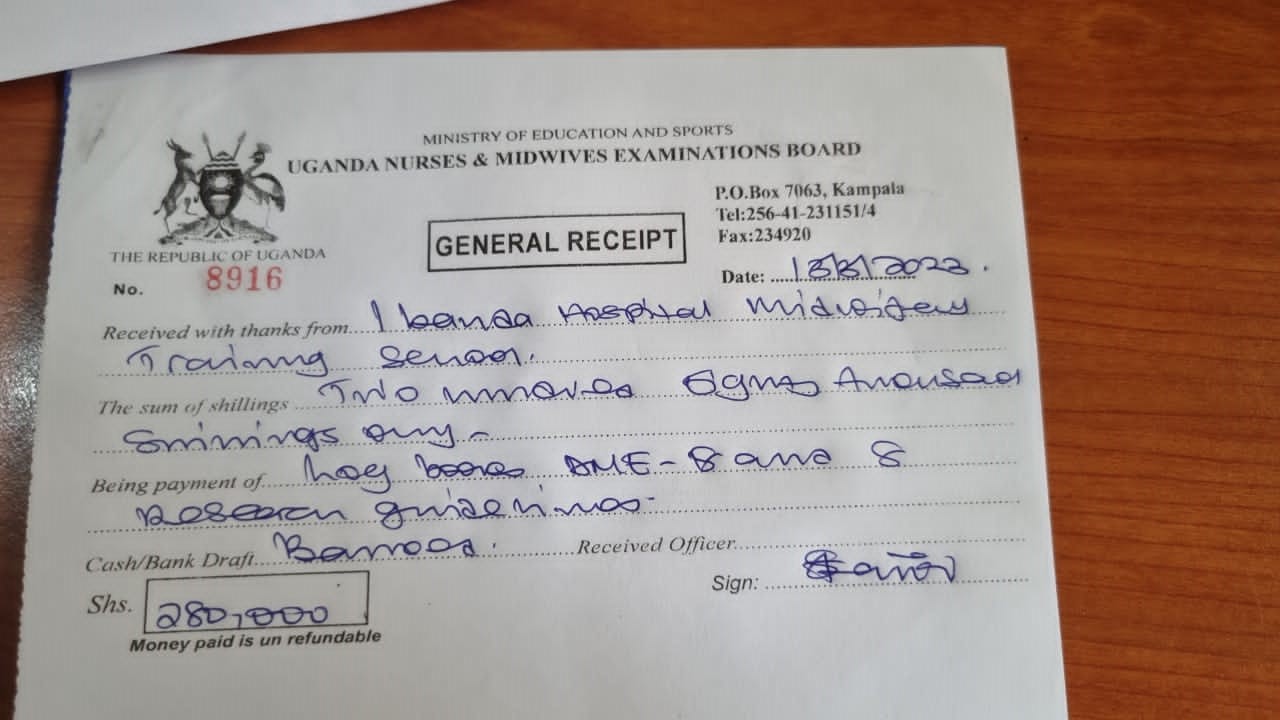 MINISTRY OF EDUCATION AND SPORTS
UGANDA NURSES & MIDWIVES EXAMINATIONS BOARD
P.O.Box 7063, Kampala
Tel:256-41-231151/4
Fax:234920
GENERAL RECEIPT
THE REPUBLIC OF UGANDA
No. 8916
Date: 2023.
Received with thanks from Ibanda Hospital Midwifery
Training School.
The sum of shillings Two hundred Eighty thousand
Shillings only -
Being payment of log books DME - 8 and 8
Research guidelines
Cash/Bank Draft Received Officer
Sign:
Shs. 280,000
Money paid is un refundable